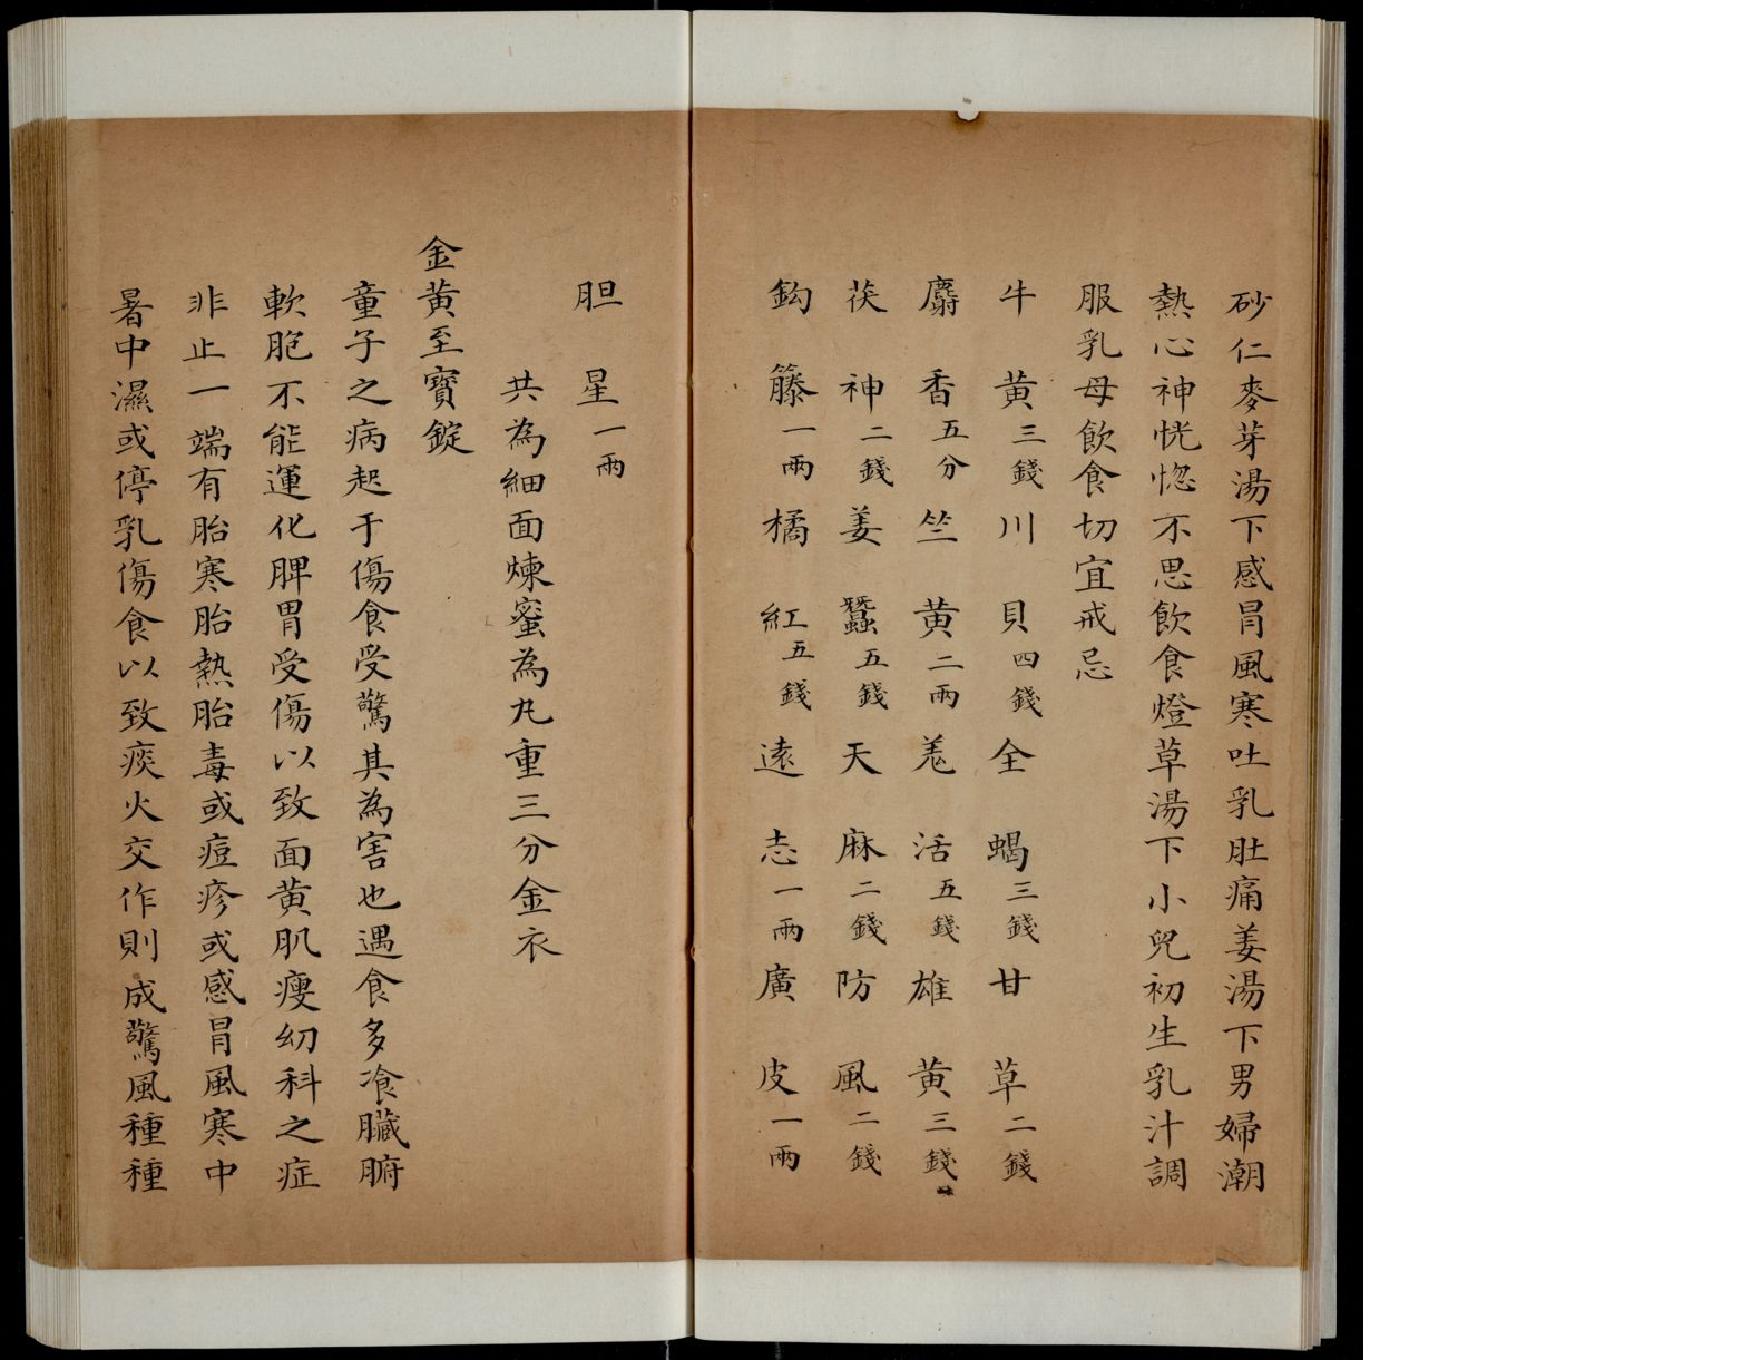 砂仁麥芽湯下感冒風寒吐乳肚痛姜湯下男婦潮
熱心神恍惚不思飲食燈草湯下小兒初生乳汁調
服乳母飲食切宜戒忌
牛黃三錢川貝四錢全蝎三錢甘草二錢
麝香五分竺黃二兩羗活五錢雄黃三錢
茯神二錢姜蠶五錢天麻二錢防風二錢
鈎籐一兩橘紅五錢遠志一兩廣皮一兩
胆星一兩
共為細面煉蜜為丸重三分金衣
金黃至寶錠
童子之病起于傷食受驚其為害也遇食多飡臟腑
軟脆不能運化脾胃受傷以致面黃肌瘦幼科之症
非止一端有胎寒胎熱胎毒或痘疹或感冒風寒中
暑中濕或停乳傷食以致痰火交作則成驚風種種